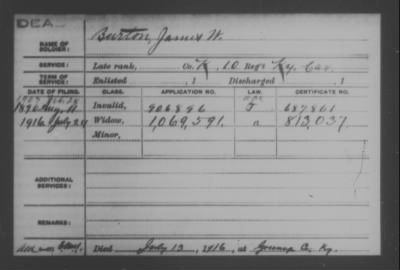 DEAD
NAME OF SOLDIER: Burton, James W.
SERVICE: Late rank, Co. K, 10 Reg't Ky. Cav.
TERM OF SERVICE: Enlisted , 1 Discharged , 1
DATE OF FILING. CLASS. APPLICATION NO. LAW. CERTIFICATE NO.
1890 Aug. 11 Invalid, 906896 687801
1916 July 24 Widow, 1,069,591 813,037
Minor,
ADDITIONAL SERVICES:
REMARKS:
Died July 13, 1916, at Greenup Co, Ky.